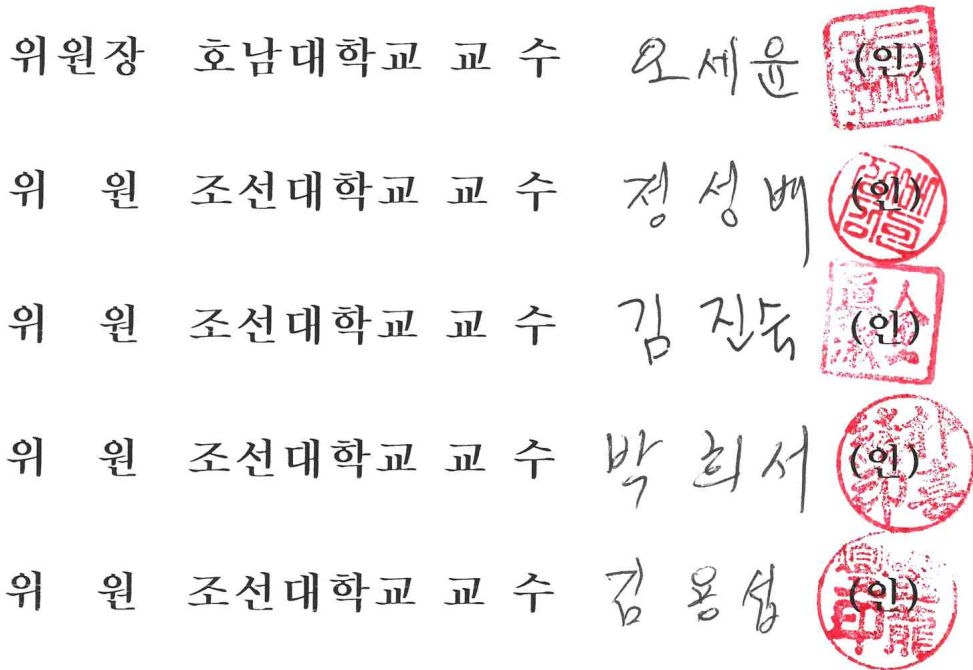 위원장 호남대학교 교 수 오세윤 (인)
위 원 조선대학교 교 수 정성배 (인)
위 원 조선대학교 교 수 김진숙 (인)
위 원 조선대학교 교 수 박희서 (인)
위 원 조선대학교 교 수 김용섭 (인)